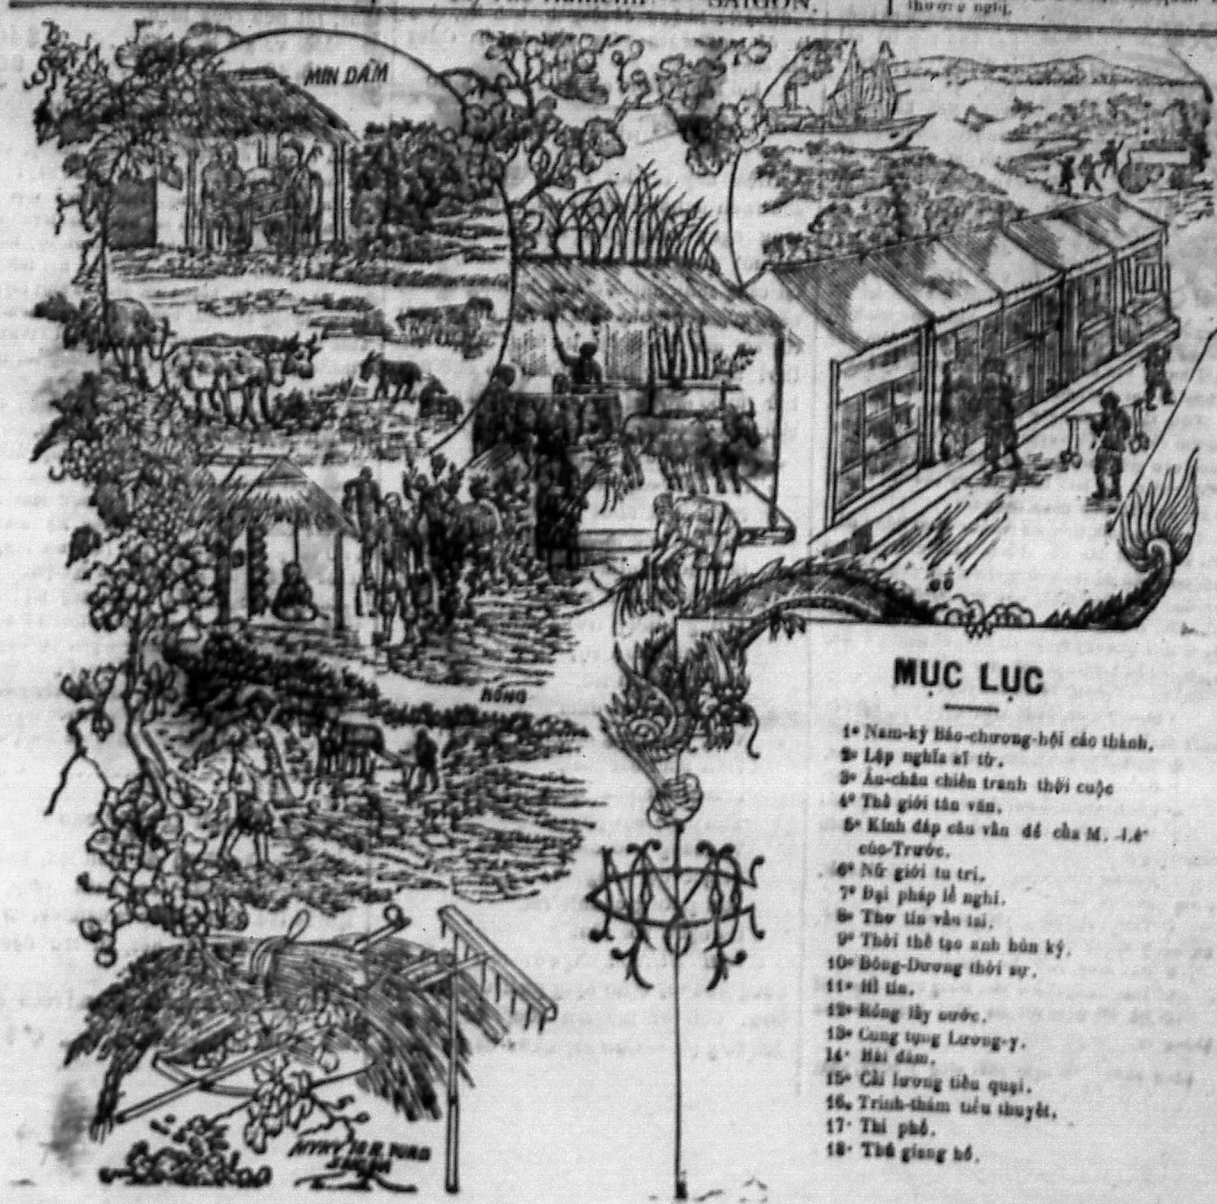 SAIGON.
thương nghị.
MIN DÀM
NÔNG
CÔ
MỤC LỤC
1º Nam-kỳ Báo-chương-hội cáo thành.
2º Lập nghĩa sĩ từ.
3º Âu-châu chiến tranh thời cuộc
4º Thế giới tân văn.
5º Kính đáp câu vấn đề của M.
cúc-Trước.
6º Nữ giới tu tri.
7º Đại pháp lễ nghi.
8º Thơ tín vãn lai.
9º Thời thế tạo anh hùn ký.
10º Đông-Dương thời sự.
11º Hỉ tín.
12º Rồng lấy nước.
13º Cung tụng Lương-y.
14º Hài đàm.
15º Cải lương tiểu quại.
16. Trinh-thám tiểu thuyết.
17º Thi phổ.
18º Thủ giang hồ.